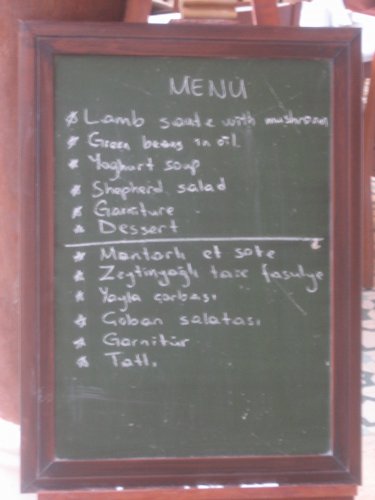 MENÜ
Lamb saute with mushroom
Green beans in oil
Yoghurt soup
Shepherd salad
Garniture
Dessert
Mantarlı et sote
Zeytinyağlı taze fasulye
Yayla çorbası
Çoban salatası
Garnitür
Tatlı